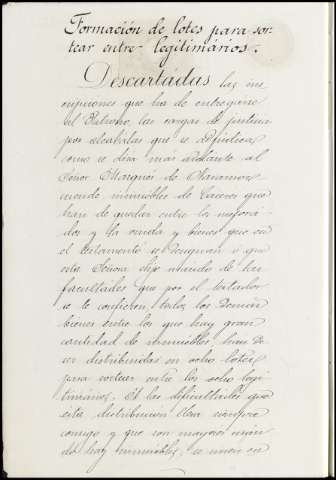 Formación de lotes para sor-
tear entre legitimários.
Descartádas las ins
cripciones que ha de entregarse
al Patrono, las cargas de justicia
por alcabalas que se adjudican
como se dirá más adelante al
Señor Marqués de
mundo inmuebles de Cáceres que
han de quedar entre los mejora-
dos y la viuda y bienes que en
el testamento se designan ó que
esta Señora elija usando de las
facultades que por el testador
se le confieren, todos los demás
bienes entre los que hay gran
cantidad de inmuebles, han de
ser distribuidos en ocho lotes
para sortear entre los ocho legi-
timários. A las dificultades que
esta distribucion lleva siempre
consigo y que son mayores cuan
do hay inmuebles, se unen en